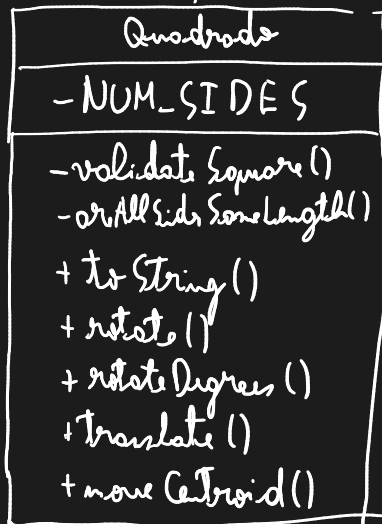 Quadrado
- NUM_SIDES
- validateSquare()
- areAllSidesSameLength()
+ toString()
+ rotate()
+ rotateDegrees()
+ translate()
+ moveCentroid()